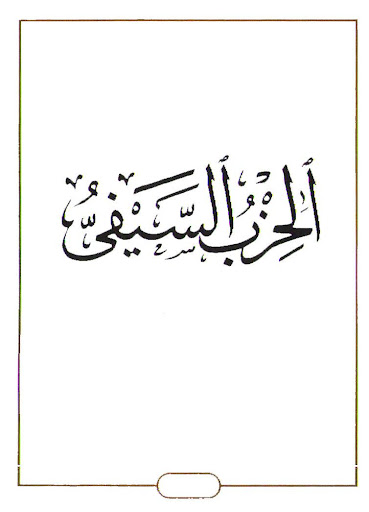 اَلْحِزْبُ السَّيْفِيُّ